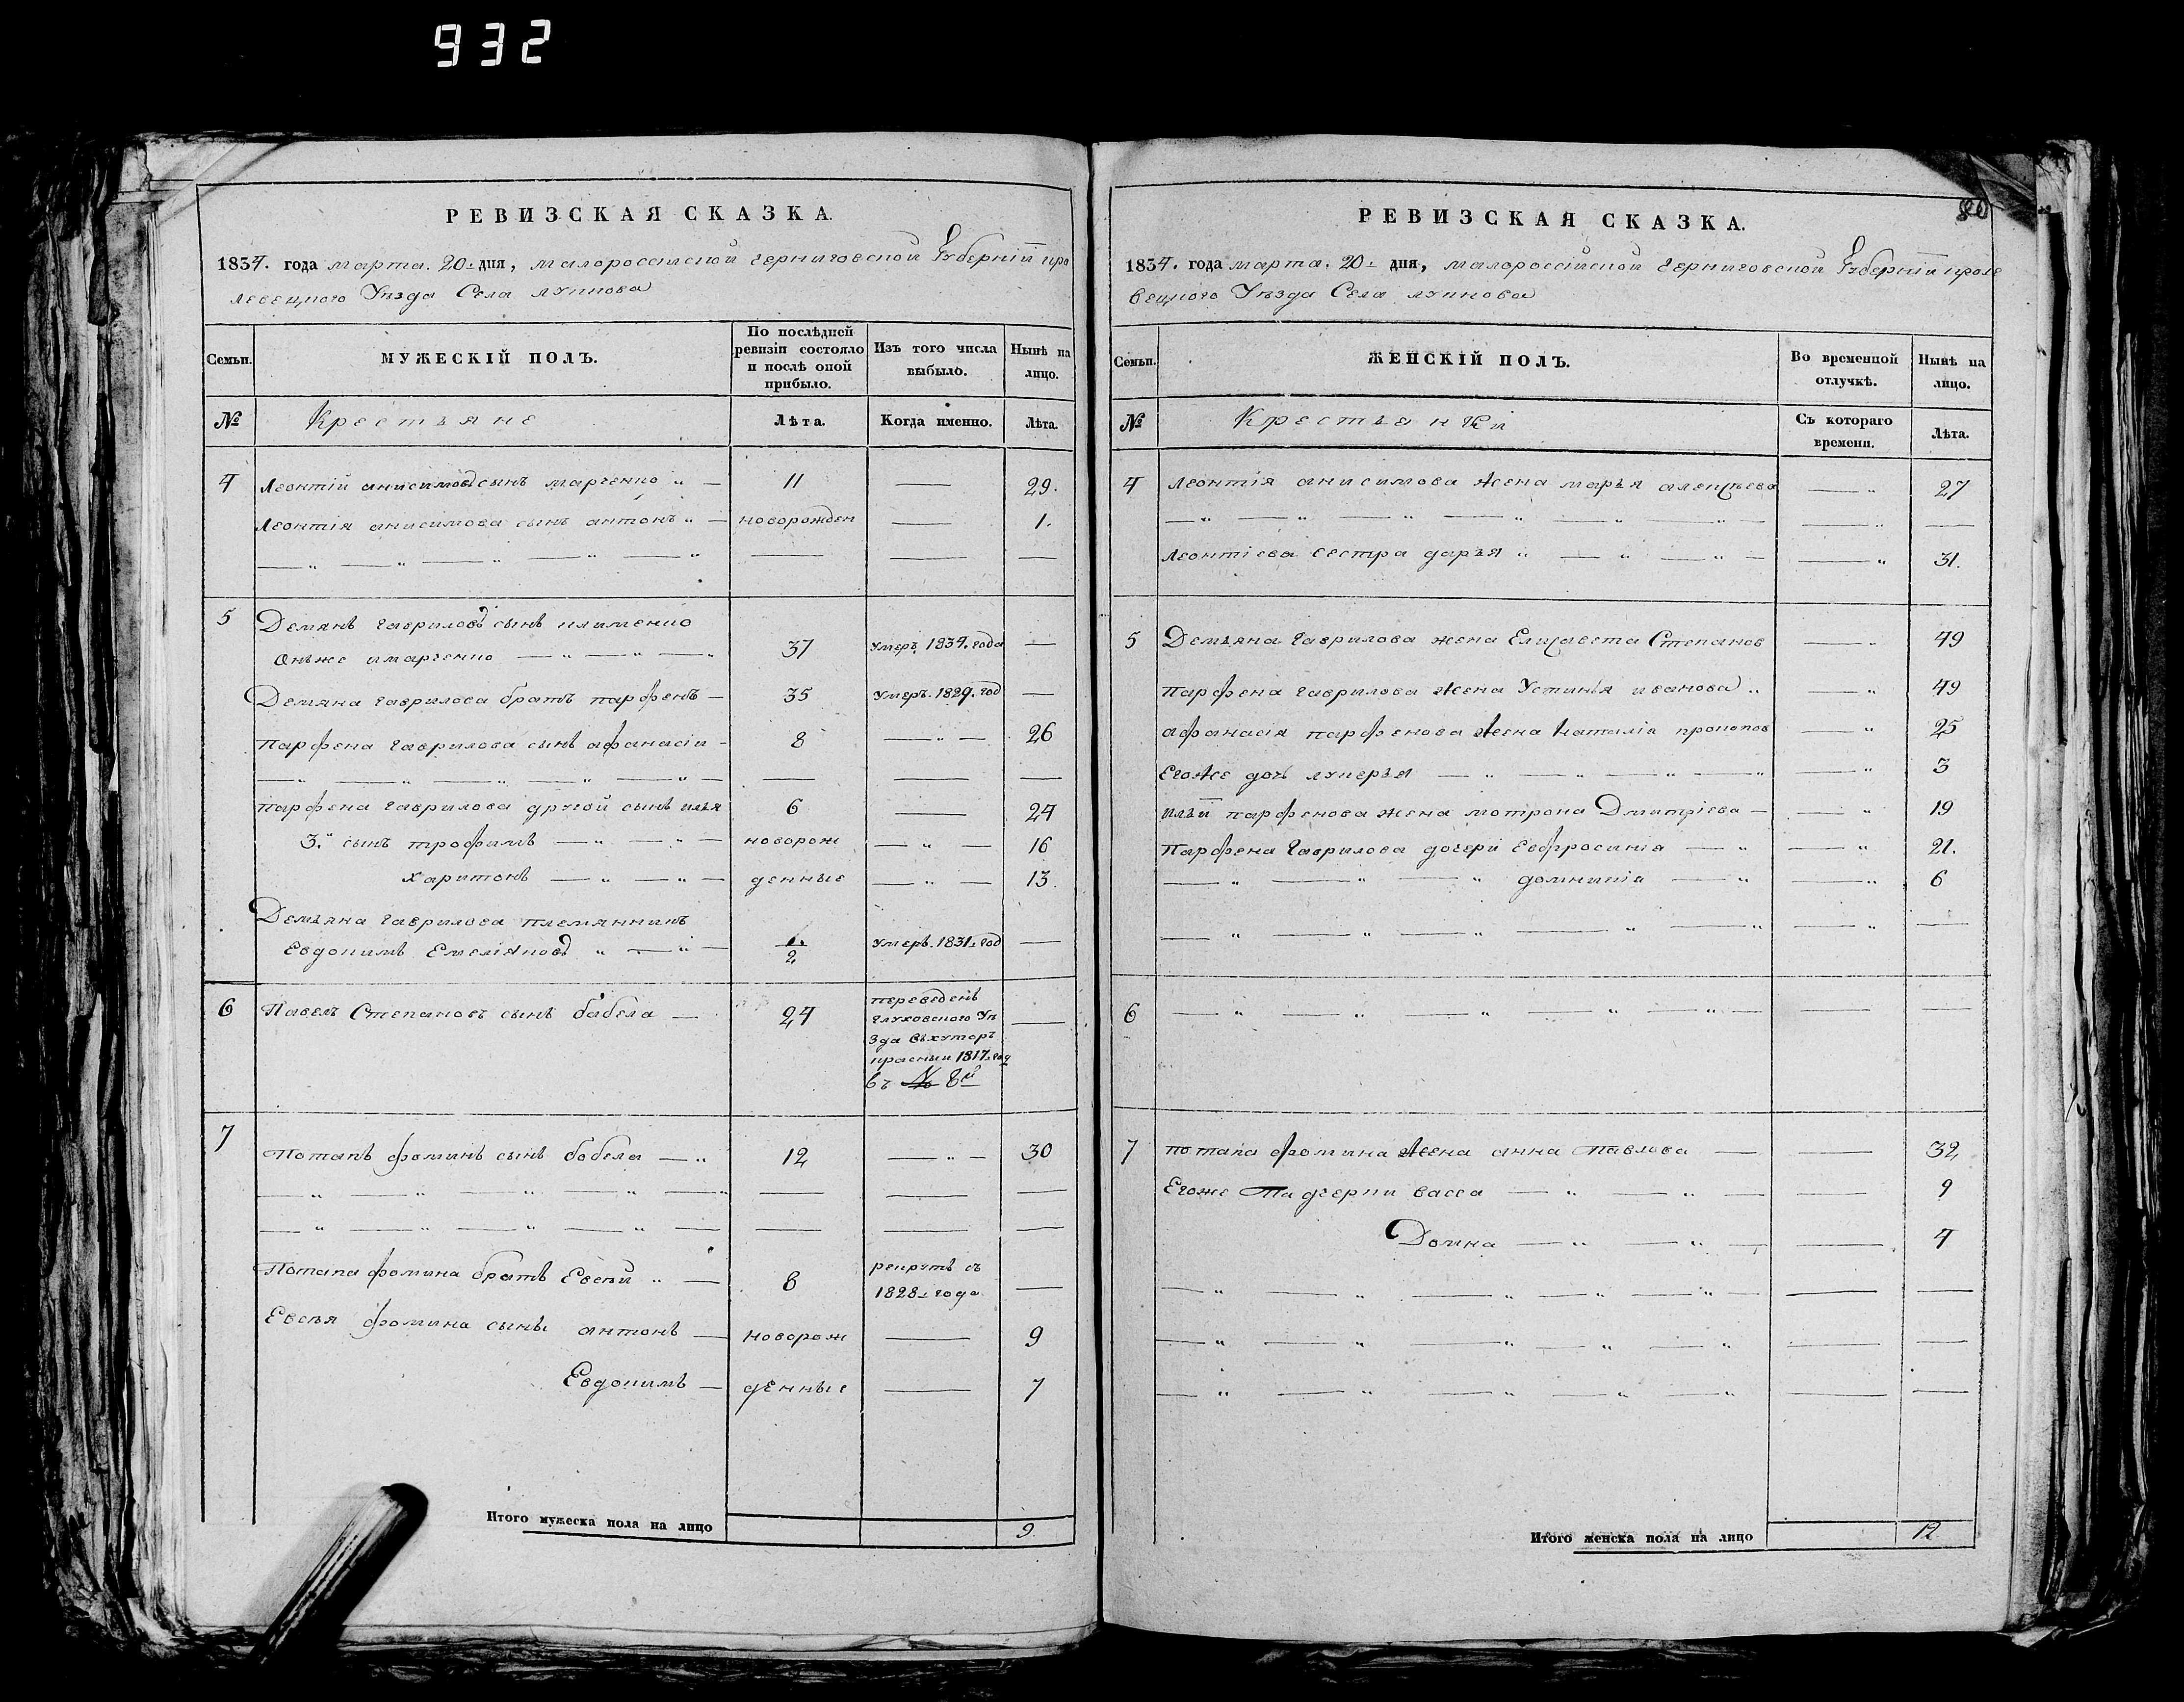 932
РЕВИЗСКАЯ СКАЗКА.
1834. года марта. 20. дня, малороссійской Черниговской Губерніи кро
левецкого Уѣзда Села лукнова
Семьи. МУЖЕСКІЙ ПОЛЪ. По послѣдней ревизіи состояло и послѣ оной прибыло. Изъ того числа выбыло. Нынѣ на лицо.
№ Крестьяне Лѣта. Когда именно. Лѣта.
4 Леонтій анисимовъ сынъ марченко „ — 11 — 29.
Леонтія анисимова сынъ антонъ „ — новорожден — 1.
5 Демянъ гаврилов сынъ клименко
Онъже имарченко — „ — „ — „ 37 умеръ 1834. года —
Демяна гаврилова братъ парфенъ — 35 умеръ. 1829. год —
парфена гаврилова сынъ афанасіи - 8 — „ — 26
парфена гаврилова другой сынъ илья 6 — 24
3.й сынъ трофимъ — „ — „ — новорож — „ — 16
харитонъ — „ — „ — денные — „ — 13.
Демьяна гаврилова племянникъ
Евдокимъ Емеліяновъ „ — „ — 1. 2 умеръ. 1831. год —
6 Павелъ Степановъ сынъ бабела — 24 переведенъ —
глуховского Уѣ
зда въ хуторъ
красный 1817. год
въ № 8й
7 Потапъ фоминъ сынъ бабела — „ 12 — „ — 30
Потапа фомина братъ Евсѣй „ — 8 рекрутъ съ
1828. года —
Евсѣя фомина сынъ антонъ — новорож — 9
Евдокимъ — денные — 7
Итого мужеска пола на лицо 9
80
РЕВИЗСКАЯ СКАЗКА.
1834. года марта. 20. дня, малороссійской Черниговской Губерніи кроле
вецкого Уѣзда Села лукнова
Семьи. ЖЕНСКІЙ ПОЛЪ. Во временной отлучкѣ. Нынѣ на лицо.
№ Крестьянки Съ котораго времени. Лѣта.
4 Леонтія анисимова жена марья алексѣева — „ 27
Леонтіева сестра дарья „ — „ — „ — — „ 31.
5 Демьяна гаврилова жена Елисавета Степанов — „ 49
парфена гаврилова жена Устинья иванова „ — „ 49
афанасія парфенова жена наталія прокопов — „ 25
Егоже дочь лукерья — „ — „ — „ — „ — „ 3
ильи парфенова жена мотрона Дмитріева — — „ 19
Парфена гаврилова дочери Евфросинія — „ — „ 21.
— „ — „ — „ домникія — „ — „ 6
6
7 потапа фомина жена анна павлова — — 32
Егоже дчерки васса — „ — „ — — 9
Домна — „ — „ — — 4
Итого женска пола на лицо 12